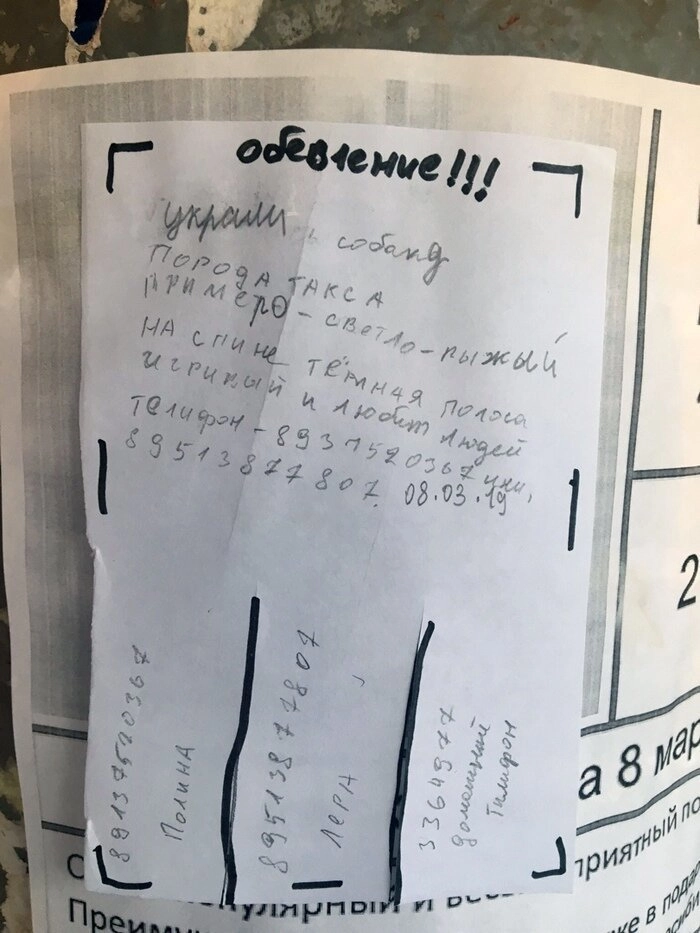 обевление!!!
украли собаку
порода такса
примеро-светло-рыжый
на спине тёмная полоса
игривый и любит людей
телифон-89137520367 или,
89513877807. 08.03.19
89137520367
Полина
89513877807
Лера
3364977
домошний
тилифон
а 8 мар
2
приятный по
Преиму
улярный и
же в подар